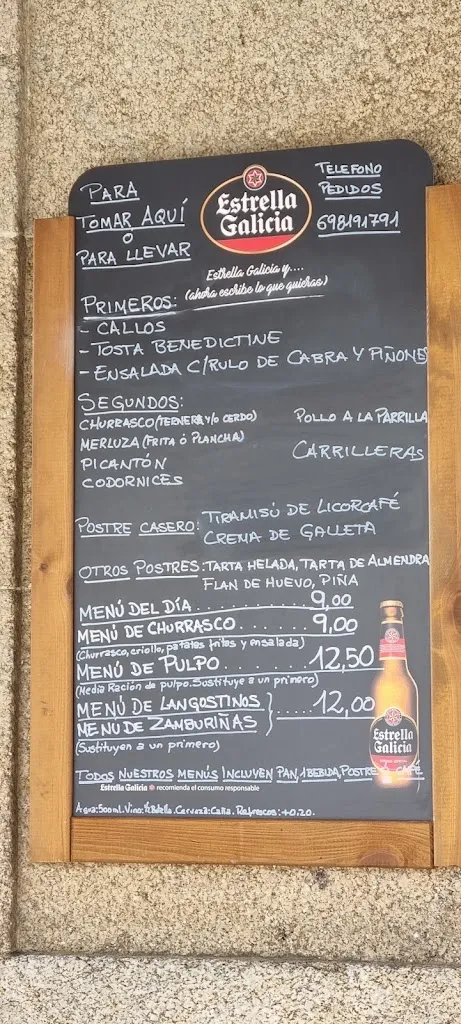 PARA
TOMAR AQUÍ
O
PARA LLEVAR
Estrella
Galicia
TELEFONO
PEDIDOS
698191791
Estrella Galicia y....
(ahora escribe lo que quieras)
PRIMEROS:
- CALLOS
- TOSTA BENEDICTINE
- ENSALADA C/RULO DE CABRA Y PIÑONES
SEGUNDOS:
CHURRASCO (TERNERA Y/O CERDO) POLLO A LA PARRILLA
MERLUZA (FRITA Ó PLANCHA) CARRILLERAS
PICANTÓN
CODORNICES
POSTRE CASERO: TIRAMISÚ DE LICORCAFÉ
CREMA DE GALLETA
OTROS POSTRES: TARTA HELADA, TARTA DE ALMENDRA
FLAN DE HUEVO, PIÑA
MENÚ DEL DÍA ............ 9,00
MENÚ DE CHURRASCO ........ 9,00
(Churrasco, criollo, patatas fritas y ensalada)
MENÚ DE PULPO ........ 12,50
(Media Ración de pulpo. Sustituye a un primero)
MENÚ DE LANGOSTINOS
MENU DE ZAMBURIÑAS } ..... 12,00
(Sustituyen a un primero)
Estrella
Galicia
TODOS NUESTROS MENÚS INCLUYEN PAN, 1 BEBIDA, POSTRE Ó CAFÉ
Estrella Galicia recomienda el consumo responsable
Agua: 500ml. Vino: 1/2 Botella. Cerveza: Caña. Refrescos: +0,20.